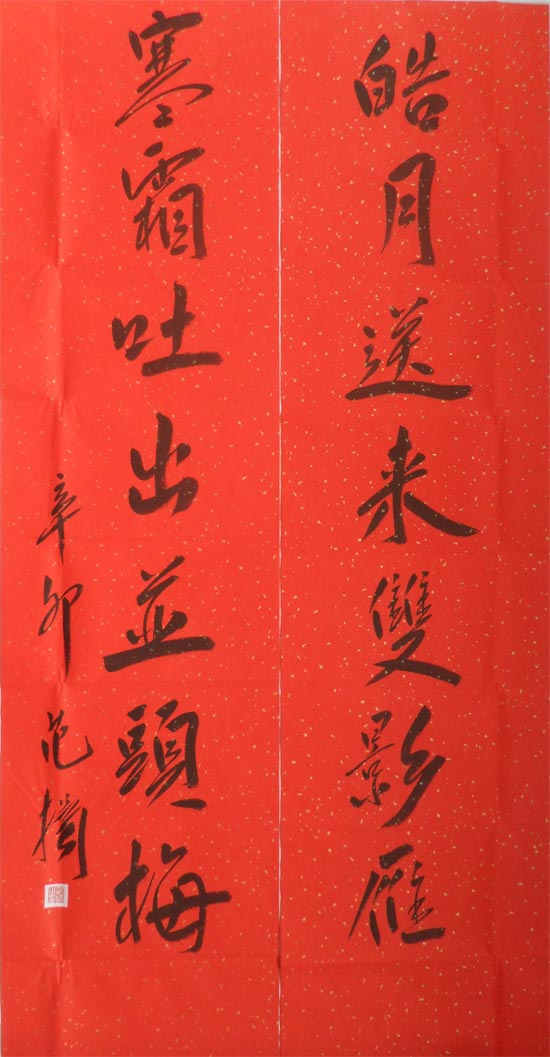 皓月送来雙影雁
寒霜吐出並頭梅
辛卯 范